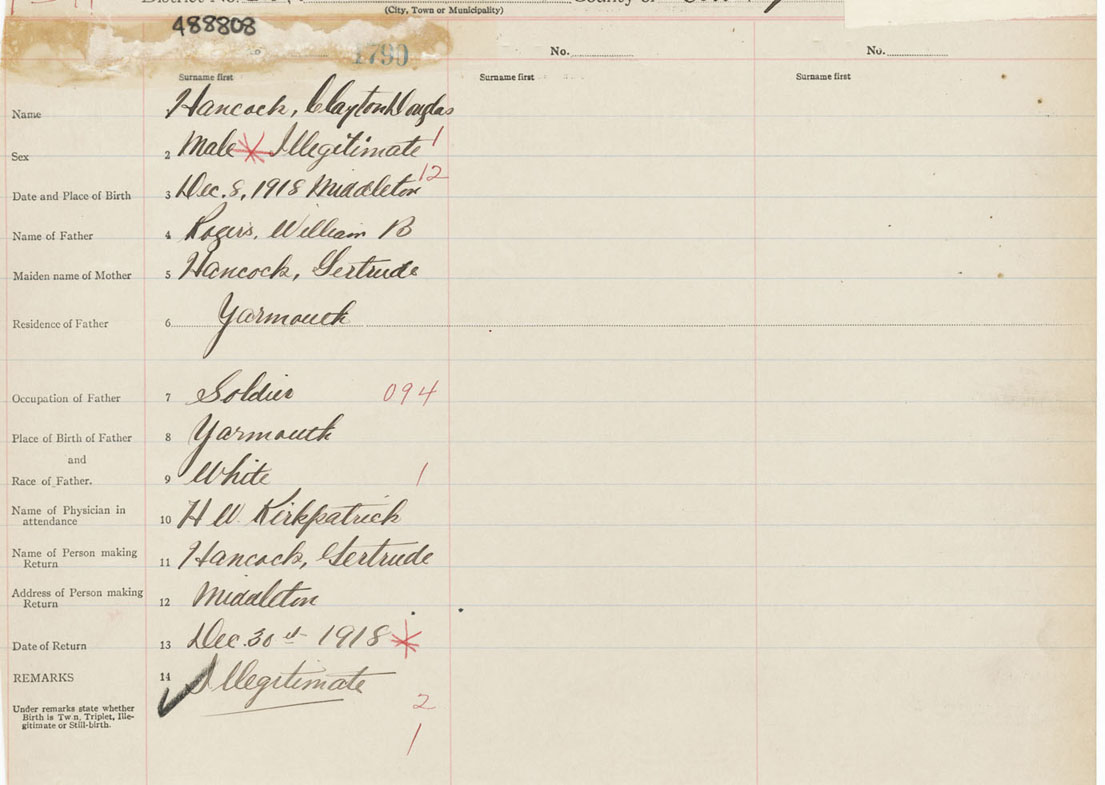 District No.
County of
(City, Town or Municipality)
488808
1790
No.
No.
Surname first
Surname first
Surname first
Name Hancock, Clayton Douglas
Sex 2 Male Illegitimate 1
12
Date and Place of Birth 3 Dec. 8, 1918 Middleton
Name of Father 4 Rogers, William B
Maiden name of Mother 5 Hancock, Gertrude
Residence of Father 6 Yarmouth
Occupation of Father 7 Soldier 094
Place of Birth of Father 8 Yarmouth
and
Race of Father. 9 White 1
Name of Physician in
attendance 10 H W. Kirkpatrick
Name of Person making
Return 11 Hancock, Gertrude
Address of Person making
Return 12 Middleton
Date of Return 13 Dec. 30th 1918
REMARKS 14 Illegitimate
Under remarks state whether
Birth is Twin, Triplet, Ille-
gitimate or Still-birth.
2
1